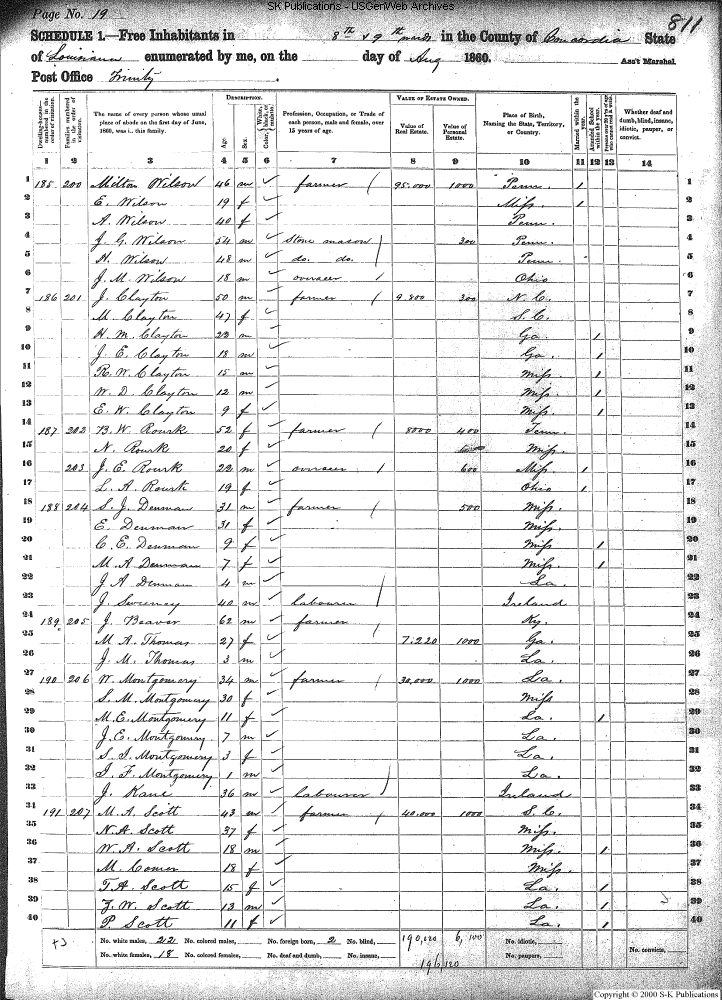 SK Publications - USGenWeb Archives
Page No. 19
811
SCHEDULE 1.—Free Inhabitants in 8th & 9th wards in the County of Concordia State
of Louisiana enumerated by me, on the day of Aug 1860. Ass't Marshal.
Post Office Trinity
DESCRIPTION. VALUE OF ESTATE OWNED.
Dwelling-houses—numbered in the order of visitation. Families numbered in the order of visitation. The name of every person whose usual place of abode on the first day of June, 1860, was in this family. Age. Sex. Color, White, black, or mulatto. Profession, Occupation, or Trade of each person, male and female, over 15 years of age. Value of Real Estate. Value of Personal Estate. Place of Birth, Naming the State, Territory, or Country. Married within the year. Attended School within the year. Whether deaf and dumb, blind, insane, idiotic, pauper, or convict.
1 2 3 4 5 6 7 8 9 10 11 12 13 14
1 185 200 Milton Wilson 46 m ✓ farmer ( 95.000 1000 Penn. 1 1
2 E. Wilson 19 f ✓ Miss. 1 2
3 A. Wilson 40 f ✓ Penn. 3
4 J. G. Wilson 54 m ✓ Stone mason ) 300 Penn. 4
5 H. Wilson 48 m ✓ do. do. ) Penn. 5
6 J. M. Wilson 18 m ✓ overseer / Ohio 6
7 186 201 J. Clayton 50 m ✓ farmer ( 9.800 300 N. C. 7
8 M. Clayton 47 f ✓ S. C. 8
9 H. M. Clayton 22 m ✓ Ga. 1 9
10 J. E. Clayton 18 m ✓ Ga. 1 10
11 R. W. Clayton 15 m ✓ Miss. 1 11
12 W. D. Clayton 12 m ✓ Miss. 1 12
13 E. W. Clayton 9 f ✓ Miss. 1 13
14 187 202 B. W. Rourk 52 f ✓ farmer ( 8000 400 Tenn. 14
15 N. Rourk 20 f ✓ Miss. 15
16 203 J. E. Rourk 22 m ✓ overseer / 600 Miss 1 16
17 L. A. Rourk 19 f ✓ Ohio 1 17
18 188 204 S. J. Denman 31 m ✓ farmer ( 500 Miss. 18
19 E. Denman 31 f ✓ Miss. 19
20 C. E. Denman 9 f ✓ Miss 1 20
21 M. A Denman 7 f ✓ Miss. 1 21
22 J. A Denman 4 m ✓ La. 22
23 J. Sweeney 40 m ✓ labourer / Ireland 23
24 189 205 J. Beaver 62 m ✓ farmer Ky. 24
25 M. A. Thomas 27 f ✓ 7.220 1000 Ga. 25
26 J. M. Thomas 3 m ✓ La. 26
27 190 206 W. Montgomery 34 m ✓ farmer ( 30,000 1000 La. 27
28 S. M. Montgomery 30 f ✓ Miss 28
29 M. E. Montgomery 11 f ✓ La. 1 29
30 J. E. Montgomery 7 m ✓ La. 30
31 S. I. Montgomery 3 f ✓ La. 31
32 I. F. Montgomery 1 m ✓ La. 32
33 J. Kane 36 m ✓ labourer ) Ireland 33
34 191 207 M. A. Scott 43 m ✓ farmer ( 40.000 1000 S. C. 34
35 N. A. Scott 37 f ✓ Miss. 35
36 W. A. Scott 18 m ✓ Miss. 1 36
37 M. Comer 18 f ✓ Miss. 37
38 T. A. Scott 15 f ✓ La. 1 38
39 Z. W. Scott 13 m ✓ La. 1 39
40 P. Scott 11 f ✓ La. 1 40
No. white males, 22 No. colored males, No. foreign born, 2 No. blind, 190,020 6,100 No. idiotic,
No. white females, 18 No. colored females, No. deaf and dumb, No. insane, No. paupers, No. convicts,
196.120
Copyright © 2000 S-K Publications